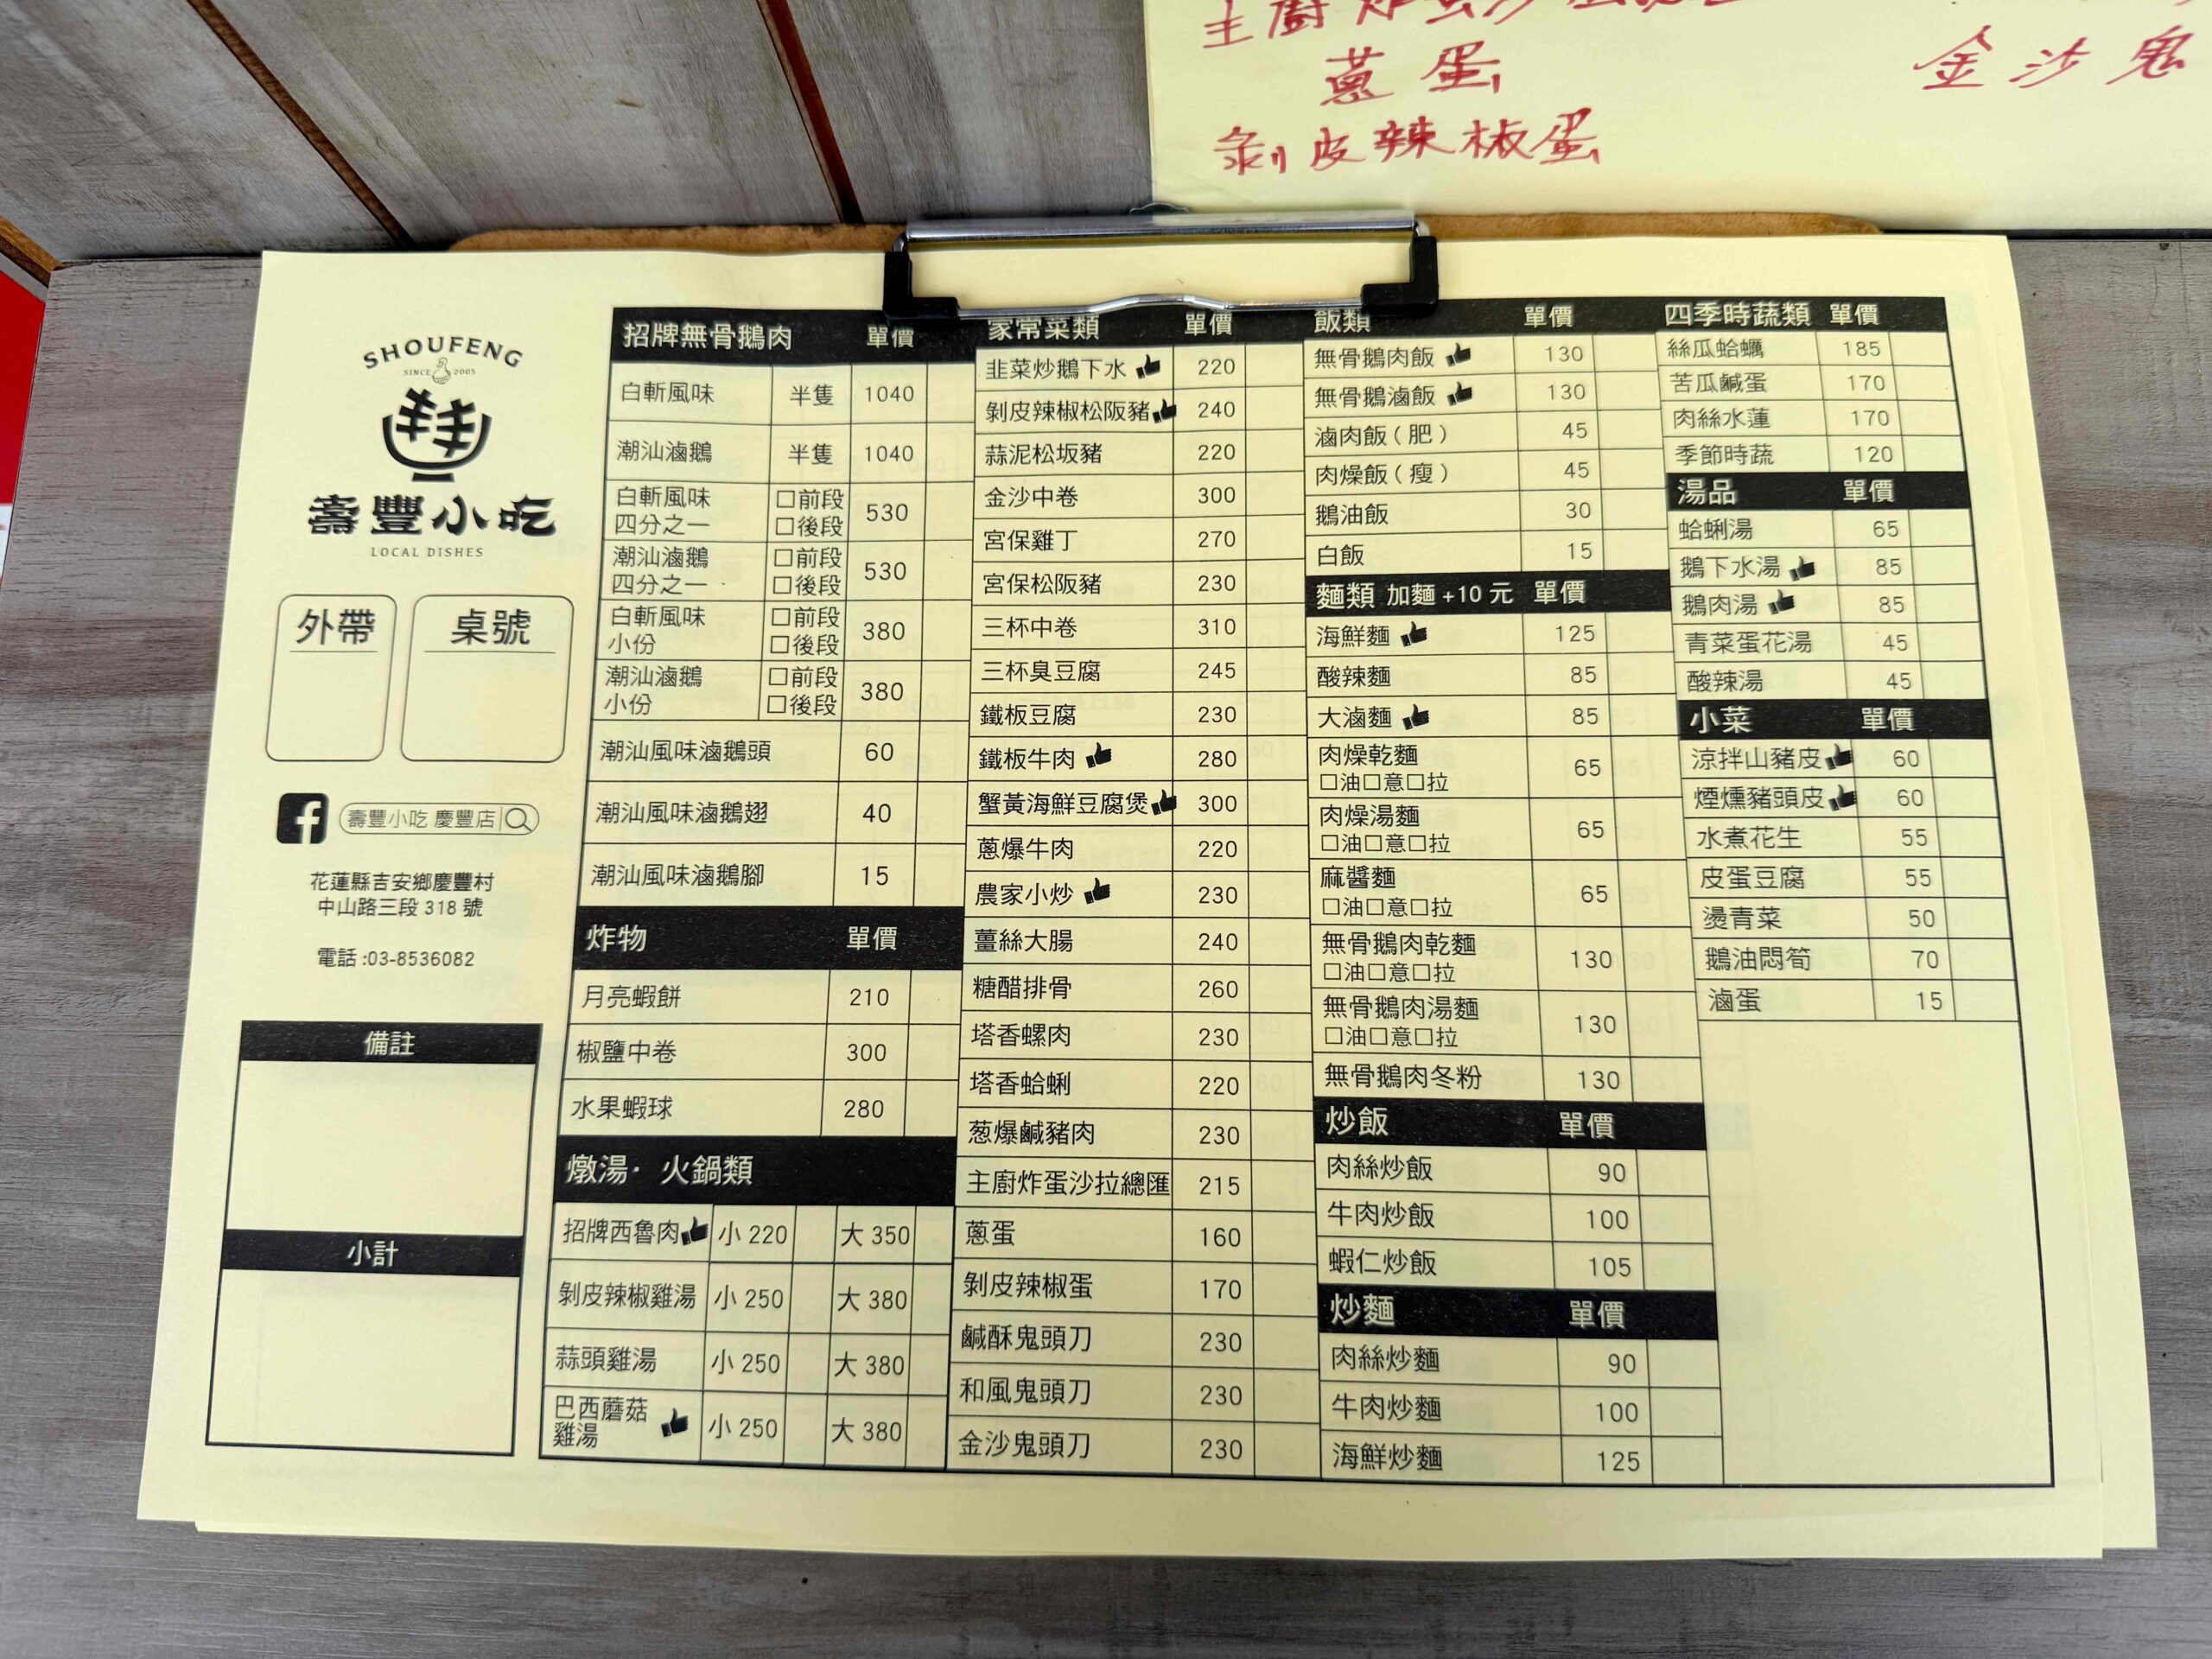 蔥蛋
金沙鬼
剝皮辣椒蛋
SHOUFENG
SINCE 2005
壽豐小吃
LOCAL DISHES
外帶
桌號
壽豐小吃 慶豐店
花蓮縣吉安鄉慶豐村
中山路三段 318 號
電話:03-8536082
備註
小計
招牌無骨鵝肉 單價
白斬風味 半隻 1040
潮汕滷鵝 半隻 1040
白斬風味 四分之一 □前段 □後段 530
潮汕滷鵝 四分之一 □前段 □後段 530
白斬風味 小份 □前段 □後段 380
潮汕滷鵝 小份 □前段 □後段 380
潮汕風味滷鵝頭 60
潮汕風味滷鵝翅 40
潮汕風味滷鵝腳 15
炸物 單價
月亮蝦餅 210
椒鹽中卷 300
水果蝦球 280
燉湯· 火鍋類
招牌西魯肉 小 220 大 350
剝皮辣椒雞湯 小 250 大 380
蒜頭雞湯 小 250 大 380
巴西蘑菇雞湯 小 250 大 380
家常菜類 單價
韭菜炒鵝下水 220
剝皮辣椒松阪豬 240
蒜泥松坂豬 220
金沙中卷 300
宮保雞丁 270
宮保松阪豬 230
三杯中卷 310
三杯臭豆腐 245
鐵板豆腐 230
鐵板牛肉 280
蟹黃海鮮豆腐煲 300
蔥爆牛肉 220
農家小炒 230
薑絲大腸 240
糖醋排骨 260
塔香螺肉 230
塔香蛤蜊 220
葱爆鹹豬肉 230
主廚炸蛋沙拉總匯 215
蔥蛋 160
剝皮辣椒蛋 170
鹹酥鬼頭刀 230
和風鬼頭刀 230
金沙鬼頭刀 230
飯類 單價
無骨鵝肉飯 130
無骨鵝滷飯 130
滷肉飯(肥) 45
肉燥飯(瘦) 45
鵝油飯 30
白飯 15
麵類 加麵 +10 元 單價
海鮮麵 125
酸辣麵 85
大滷麵 85
肉燥乾麵 65
□油□意□拉
肉燥湯麵 65
□油□意□拉
麻醬麵 65
□油□意□拉
無骨鵝肉乾麵 130
□油□意□拉
無骨鵝肉湯麵 130
□油□意□拉
無骨鵝肉冬粉 130
炒飯 單價
肉絲炒飯 90
牛肉炒飯 100
蝦仁炒飯 105
炒麵 單價
肉絲炒麵 90
牛肉炒麵 100
海鮮炒麵 125
四季時蔬類 單價
絲瓜蛤蠣 185
苦瓜鹹蛋 170
肉絲水蓮 170
季節時蔬 120
湯品 單價
蛤蜊湯 65
鵝下水湯 85
鵝肉湯 85
青菜蛋花湯 45
酸辣湯 45
小菜 單價
涼拌山豬皮 60
煙燻豬頭皮 60
水煮花生 55
皮蛋豆腐 55
燙青菜 50
鵝油悶筍 70
滷蛋 15